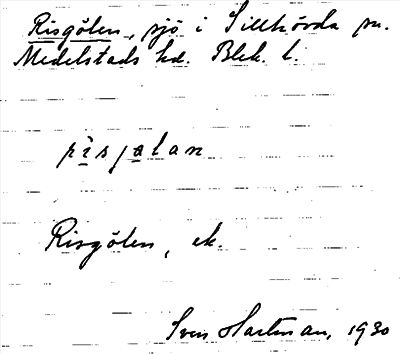 Risgölen, sjö i Tillhövda sn.
Medelstads hd. Blek. l.
rìsjølan
Risgölen, ek.
Sven Hartman, 1930